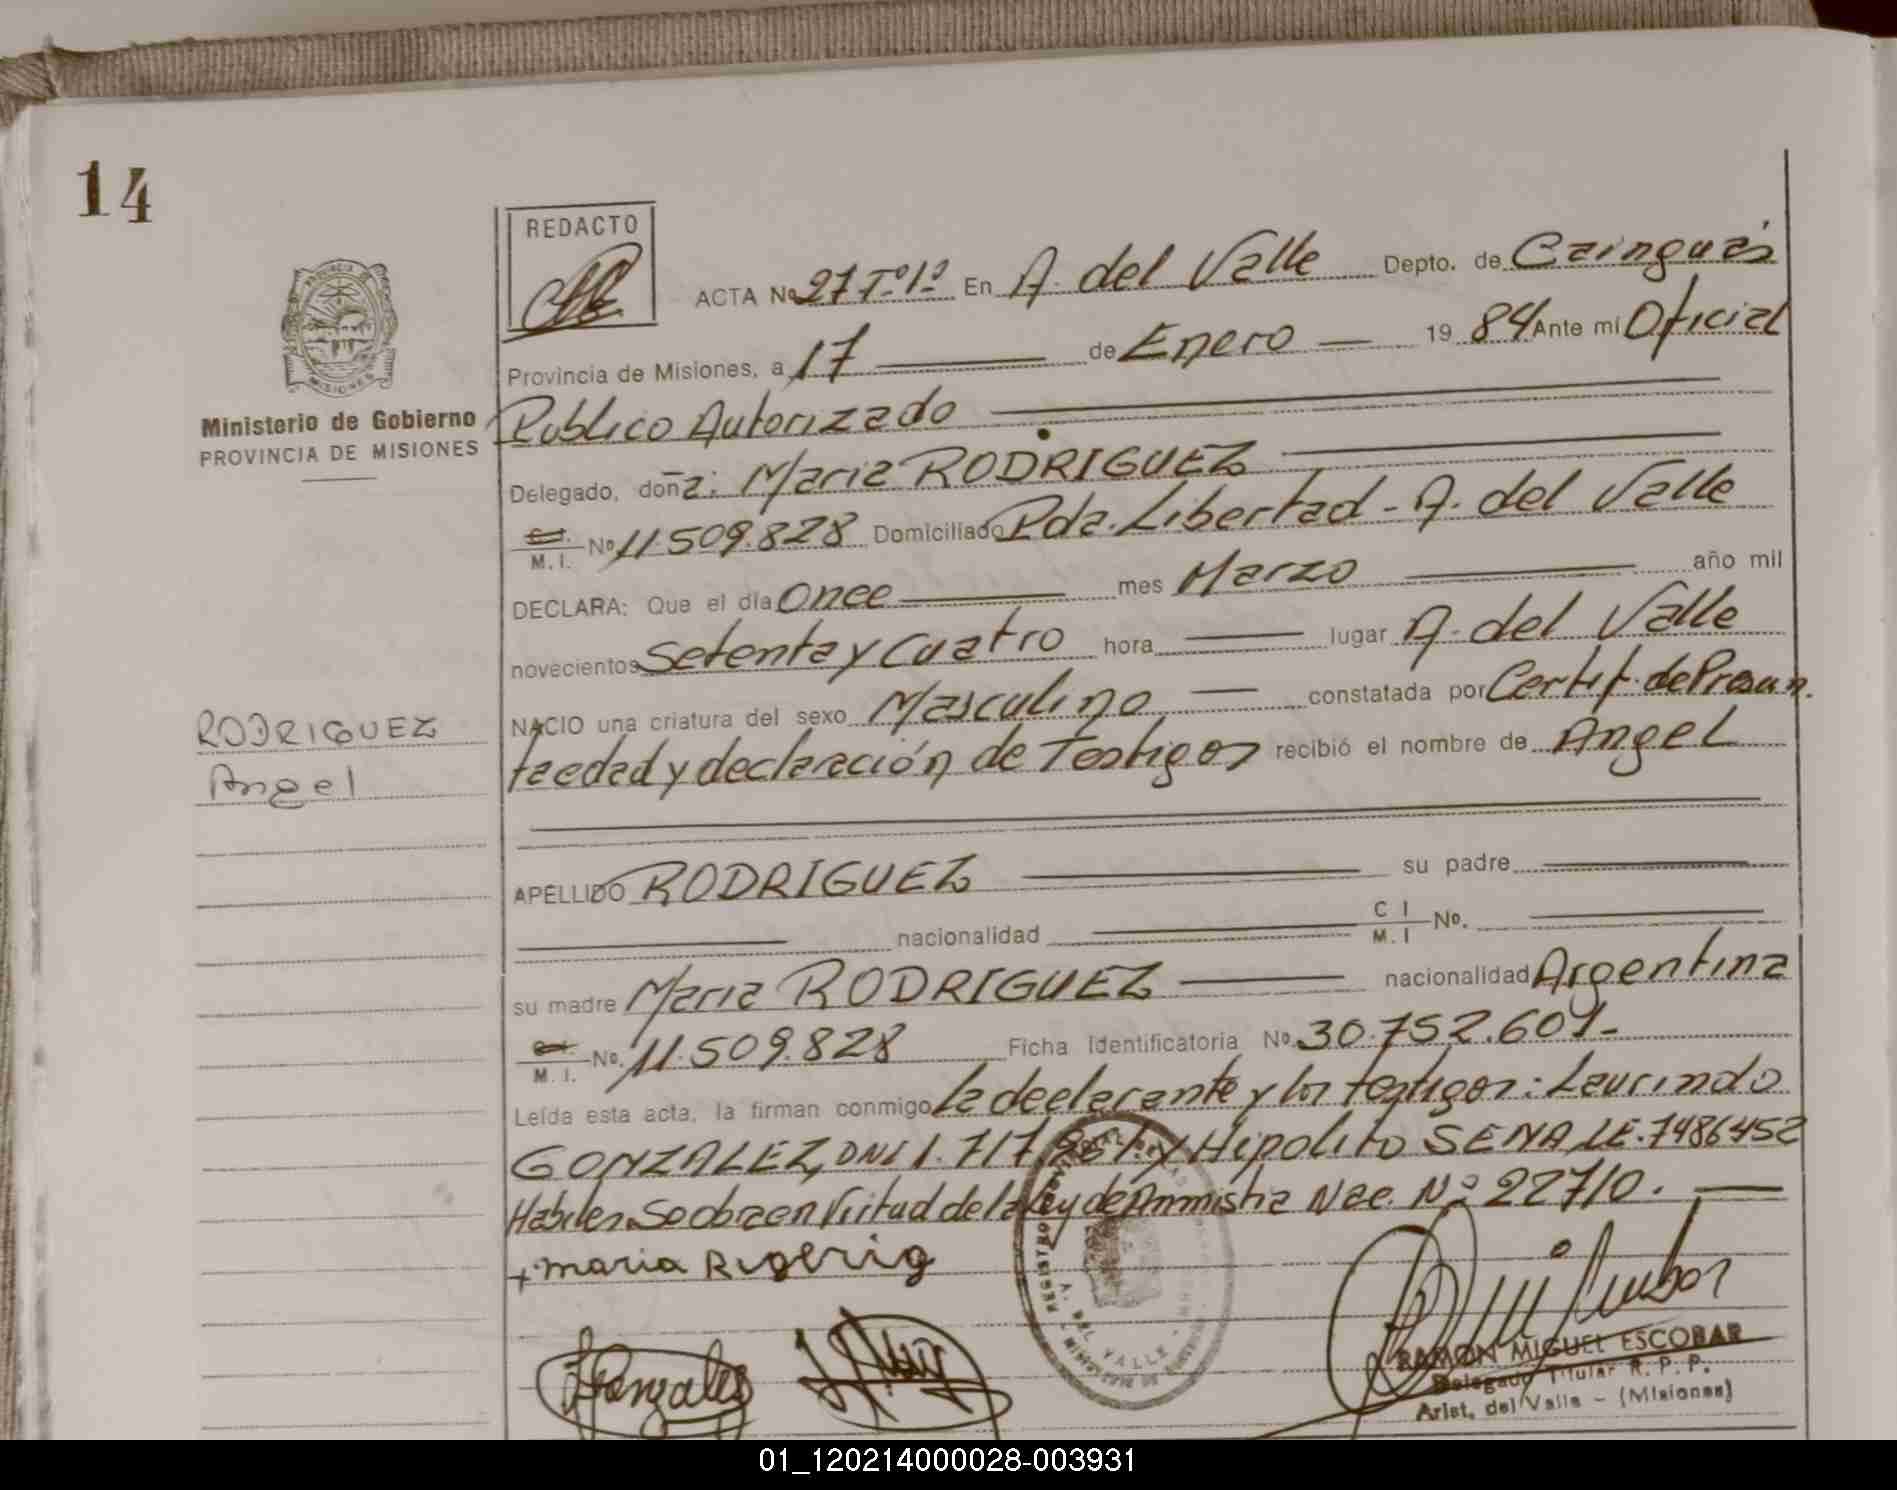 14
REDACTO
ACTA No 27 Tº1º En A. del Valle Depto. de Cainguás
Provincia de Misiones, a 17 de Enero 19 84 Ante mi Oficial
Ministerio de Gobierno
PROVINCIA DE MISIONES
Publico Autorizado
Delegado, doña: Maria RODRIGUEZ
M. I. No 11.509.828 Domiciliado Pda. Libertad - A. del Valle
DECLARA: Que el día Once mes Marzo año mil
novecientos Setenta y Cuatro hora lugar A. del Valle
NACIO una criatura del sexo Masculino constatada por Certif. de Presun
RODRIGUEZ
Angel
ta edad y declaración de Testigos recibió el nombre de Angel
APELLIDO RODRIGUEZ su padre
nacionalidad C I M. I No.
su madre Maria RODRIGUEZ nacionalidad Argentina
M. I. No. 11.509.828 Ficha Identificatoria No. 30.752.601-
Leída esta acta, la firman conmigo la declarante y los testigos: Laurindo
GONZALEZ, DNI y Hipolito SENA LE. 7486452
Habiles. Se obra en Virtud de la Ley de Ammistia Nac. Nº 22710.
+ maria
Gonzales
REGISTRO
A. DEL VALLE
RAMON MIGUEL ESCOBAR
Delegado Titular R. P. P.
Arist. del Valle - (Misiones)
01_120214000028-003931